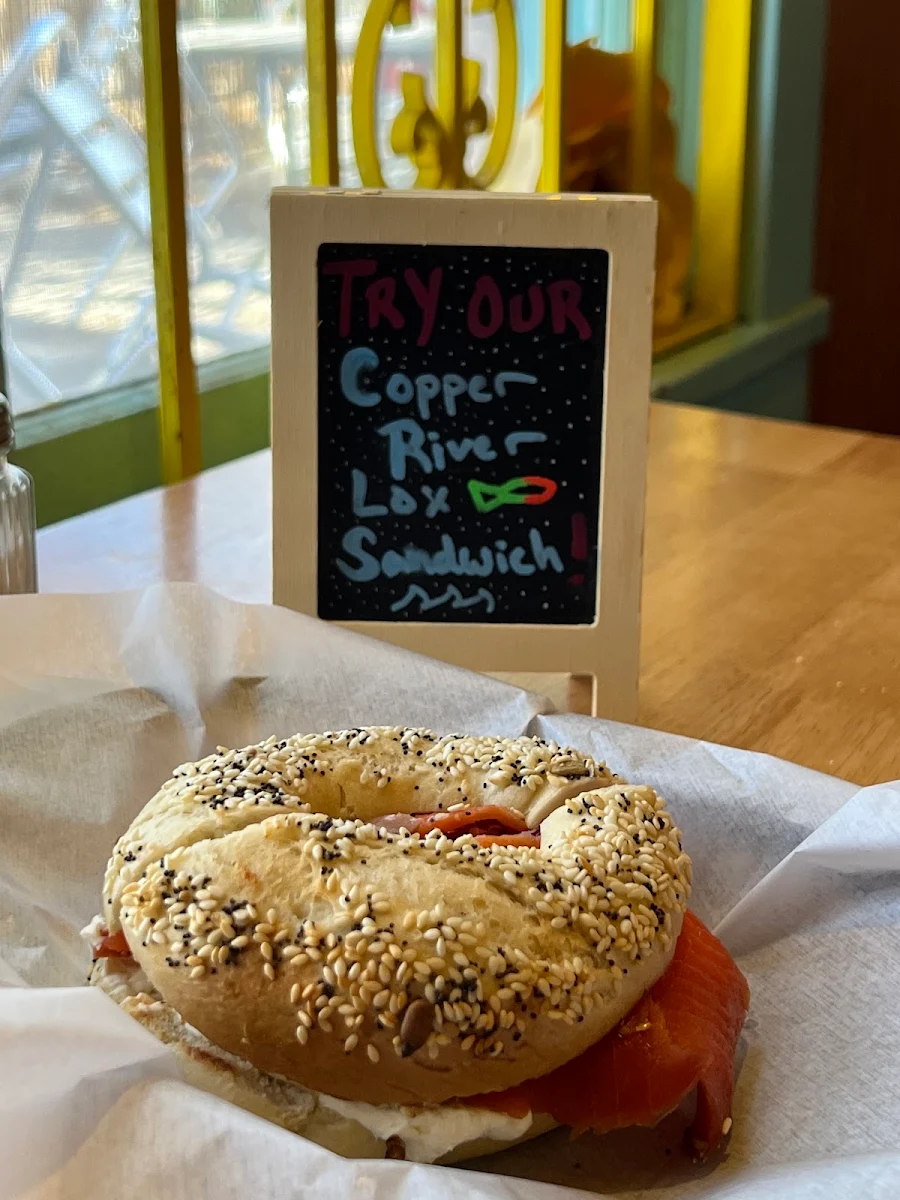 TRY OUR
Copper
River
Lox
Sandwich!